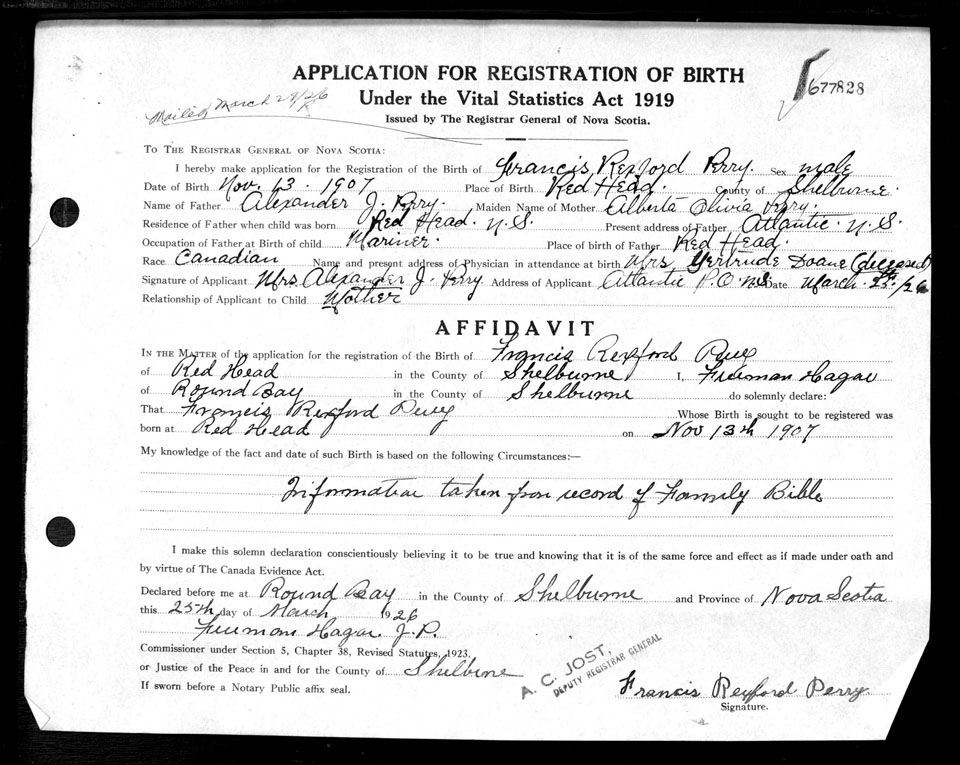 APPLICATION FOR REGISTRATION OF BIRTH
677828
Under the Vital Statistics Act 1919
Mailed March 29/26
Issued by The Registrar General of Nova Scotia.
TO THE REGISTRAR GENERAL OF NOVA SCOTIA:
I hereby make application for the Registration of the Birth of Francis Rexford Perry. Sex male
Date of Birth Nov. 13. 1907 Place of Birth Red Head. County of Shelburne.
Name of Father Alexander J. Perry. Maiden Name of Mother Alberta Olivia Perry.
Residence of Father when child was born Red Head. N.S. Present address of Father Atlantic N.S.
Occupation of Father at Birth of child Mariner. Place of birth of Father Red Head.
Race Canadian Name and present address of Physician in attendance at birth Mrs Gertrude Doane (deceased)
Signature of Applicant Mrs. Alexander J. Perry Address of Applicant Atlantic P.O. N.S. Date March. 25th/26
Relationship of Applicant to Child Mother
AFFIDAVIT
IN THE MATTER of the application for the registration of the Birth of Francis Rexford Perry
of Red Head in the County of Shelburne I, Freeman Hagar
of Round Bay in the County of Shelburne do solemnly declare:
That Francis Rexford Perry Whose Birth is sought to be registered was
born at Red Head on Nov 13th 1907
My knowledge of the fact and date of such Birth is based on the following Circumstances:—
Information taken from record of Family Bible
I make this solemn declaration conscientiously believing it to be true and knowing that it is of the same force and effect as if made under oath and
by virtue of The Canada Evidence Act.
Declared before me at Round Bay in the County of Shelburne and Province of Nova Scotia
this 25th day of March 1926
Freeman Hagar. J.P.
Commissioner under Section 5, Chapter 38, Revised Statutes, 1923.
or Justice of the Peace in and for the County of Shelburne
A. C. JOST,
DEPUTY REGISTRAR GENERAL
If sworn before a Notary Public affix seal.
Francis Rexford Perry
Signature.